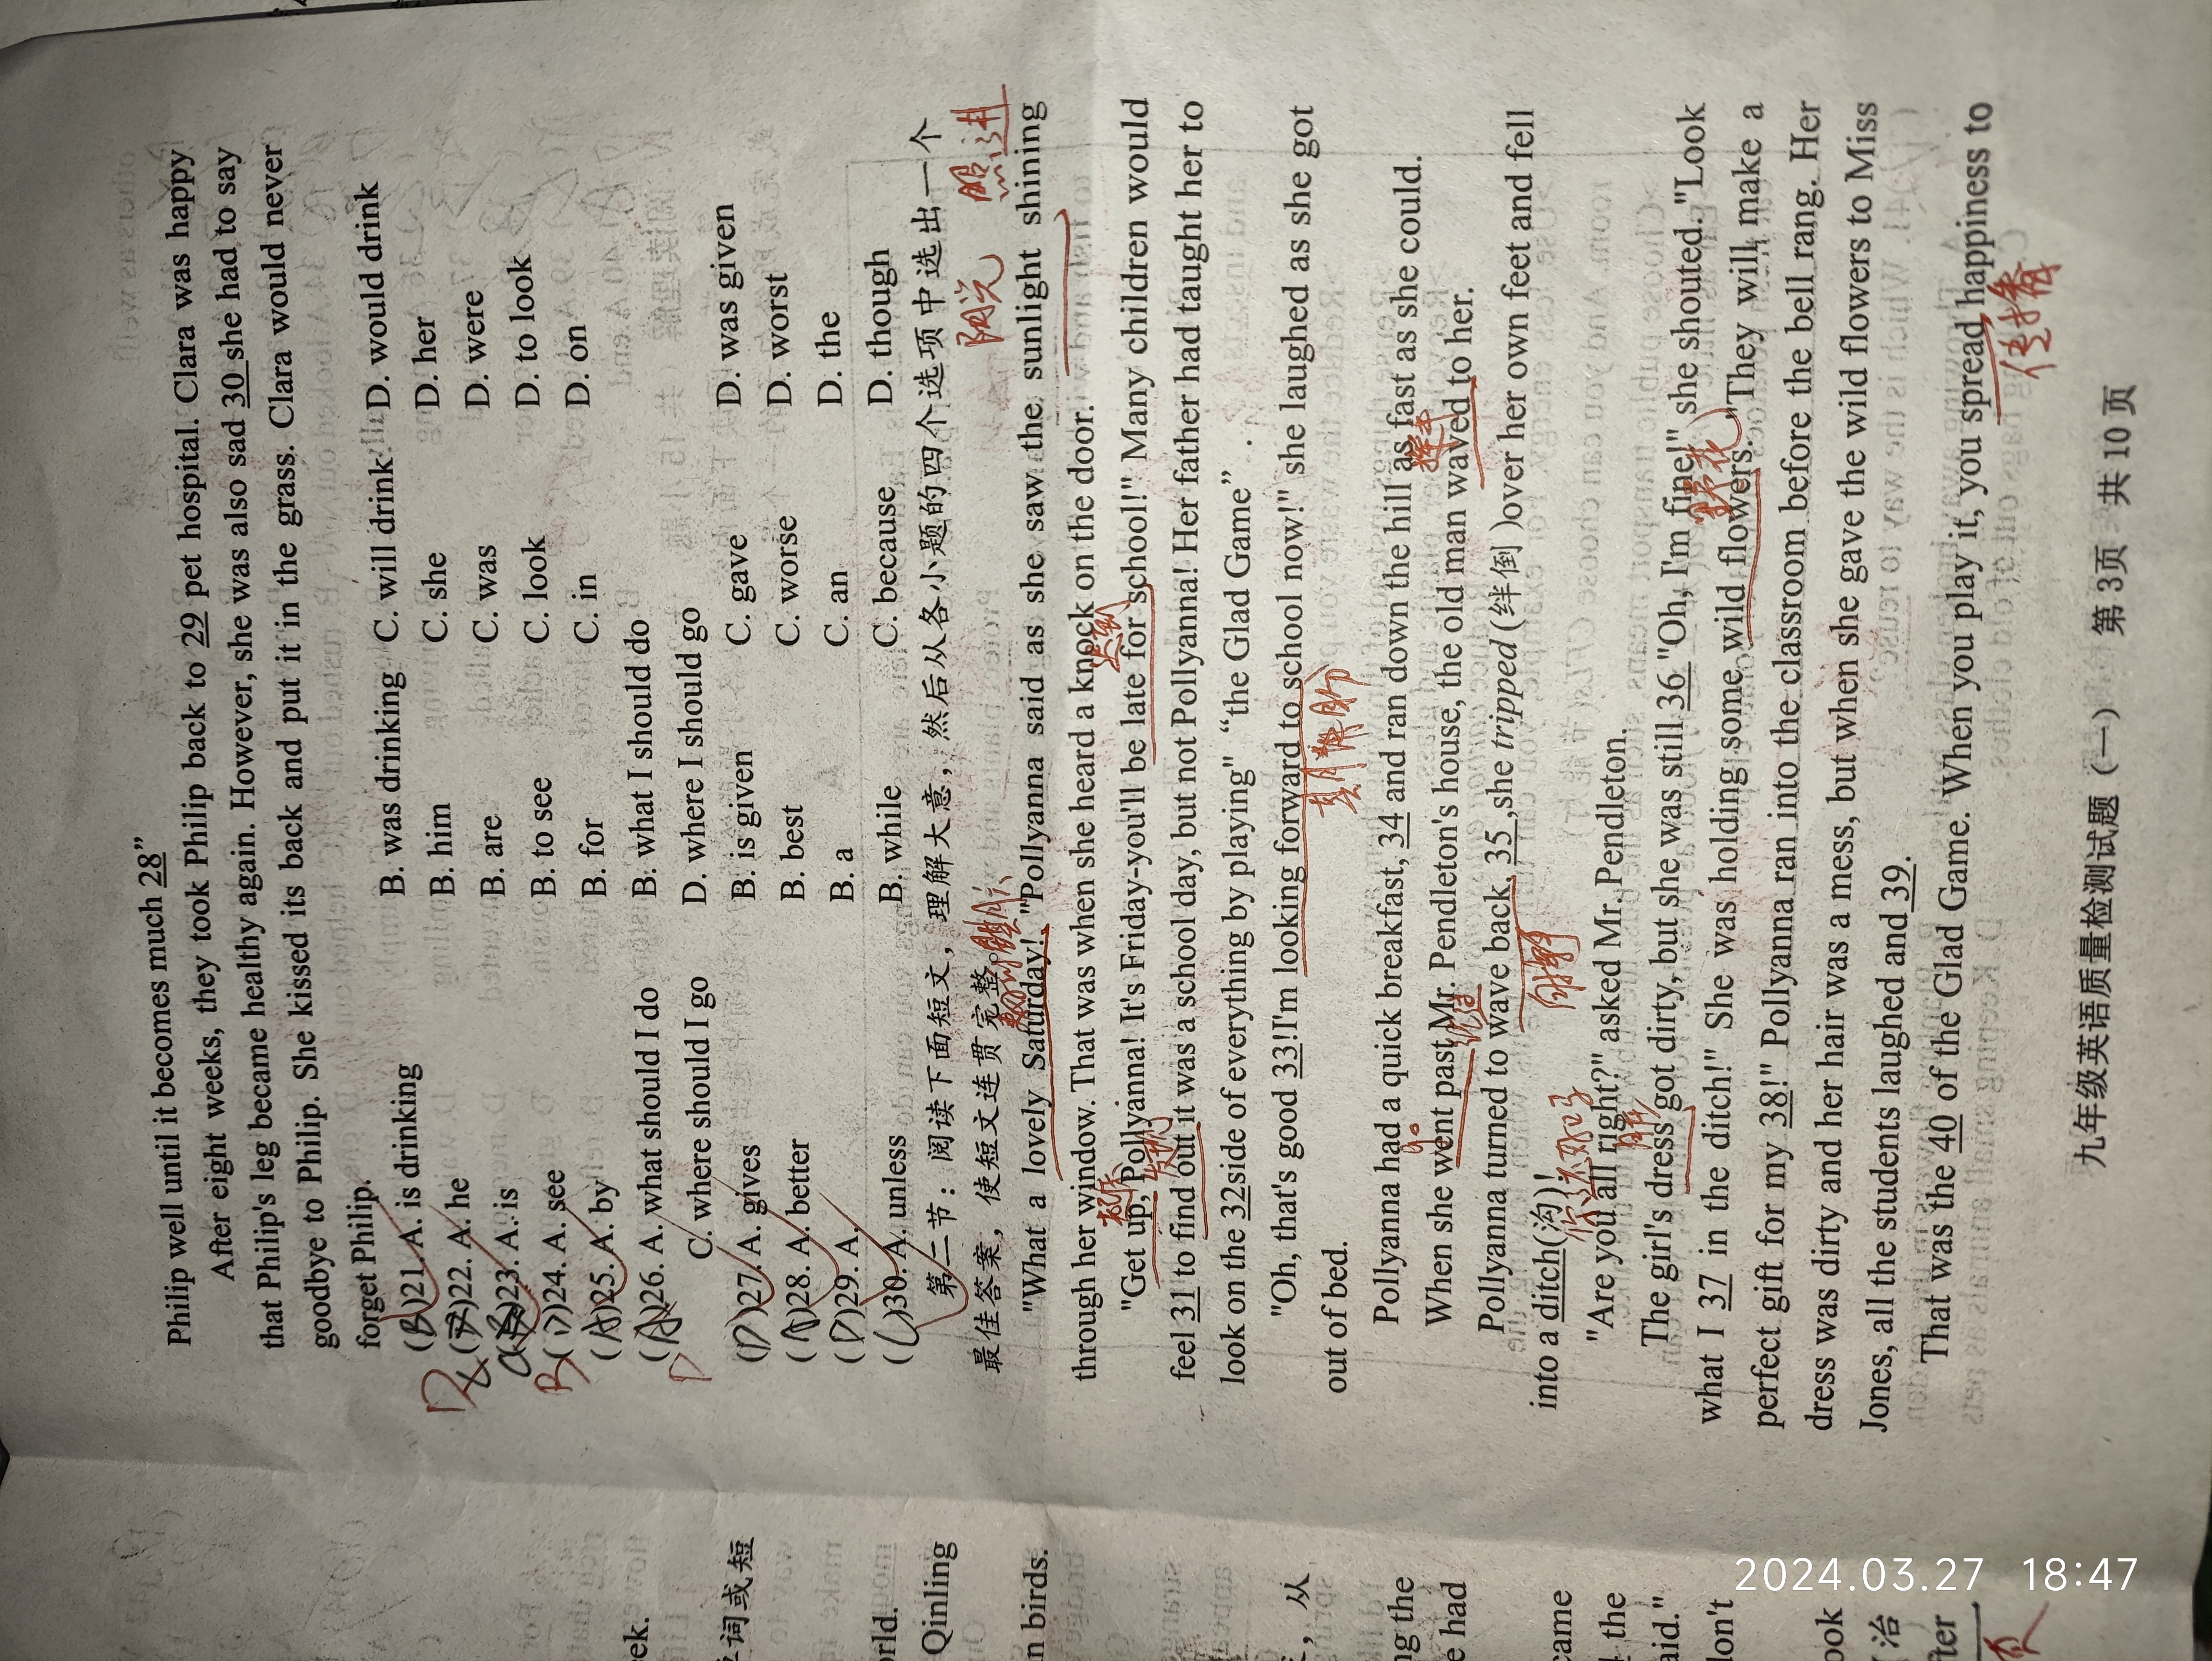 Philip well until it becomes much 28”
After eight weeks, they took Philip back to 29 pet hospital. Clara was happy
that Philip's leg became healthy again. However, she was also sad 30 she had to say
goodbye to Philip. She kissed its back and put it in the grass. Clara would never
forget Philip.
(B)21. A. is drinking B. was drinking C. will drink D. would drink
D
( )22. A. he B. him C. she D. her
( )23. A. is B. are C. was D. were
B
(D)24. A. see B. to see C. look D. to look
(A)25. A. by B. for C. in D. on
(A)26. A. what should I do B. what I should do
D
C. where should I go D. where I should go
(D)27. A. gives B. is given C. gave D. was given
(A)28. A. better B. best C. worse D. worst
(D)29. A. B. a C. an D. the
(C)30. A. unless B. while C. because D. though
第二节：阅读下面短文，理解大意，然后从各小题的四个选项中选出一个
最佳答案，使短文连贯完整。
阳光 照进
"What a lovely Saturday!" "Pollyanna said as she saw the sunlight shining
through her window. That was when she heard a knock on the door.
"Get up, Pollyanna! It's Friday-you'll be late for school!" Many children would
feel 31 to find out it was a school day, but not Pollyanna! Her father had taught her to
发现
look on the 32side of everything by playing” “the Glad Game”
"Oh, that's good 33!I'm looking forward to school now!" she laughed as she got
out of bed.
Pollyanna had a quick breakfast, 34 and ran down the hill as fast as she could.
When she went past Mr. Pendleton's house, the old man waved to her.
Pollyanna turned to wave back, 35 ,she tripped (绊倒 )over her own feet and fell
into a ditch(沟)!
"Are you all right?" asked Mr. Pendleton.
你还好吗
The girl's dress got dirty, but she was still 36 "Oh, I'm fine!" she shouted. "Look
what I 37 in the ditch!" She was holding some wild flowers. "They will make a
perfect gift for my 38!" Pollyanna ran into the classroom before the bell rang. Her
dress was dirty and her hair was a mess, but when she gave the wild flowers to Miss
Jones, all the students laughed and 39.
That was the 40 of the Glad Game. When you play it, you spread happiness to
传播
九年级英语质量检测试题（一） 第 3页 共 10 页
eek.
单词或短
orld.
Qinling
n birds.
，从
ng the
e had
came
the
aid."
don't
ook
（治
fter
页
2024.03.27 18:47